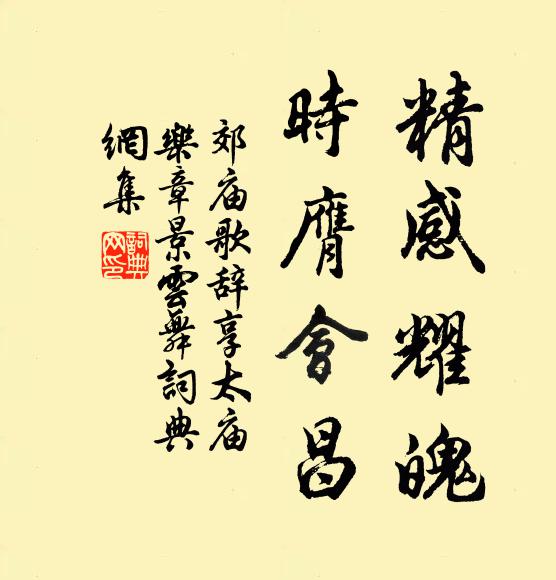 精感耀魄
時膺會昌
郊庙歌辞享太庙
樂章景雲舞詞典
網集
詞典
网印